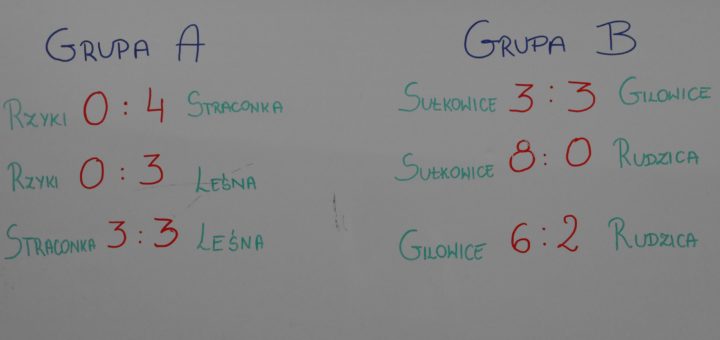 GRUPA A
RZYKI 0:4 STRACONKA
RZYKI 0:3 LEŚNA
STRACONKA 3:3 LEŚNA
GRUPA B
SUŁKOWICE 3:3 GILOWICE
SUŁKOWICE 8:0 RUDZICA
GILOWICE 6:2 RUDZICA